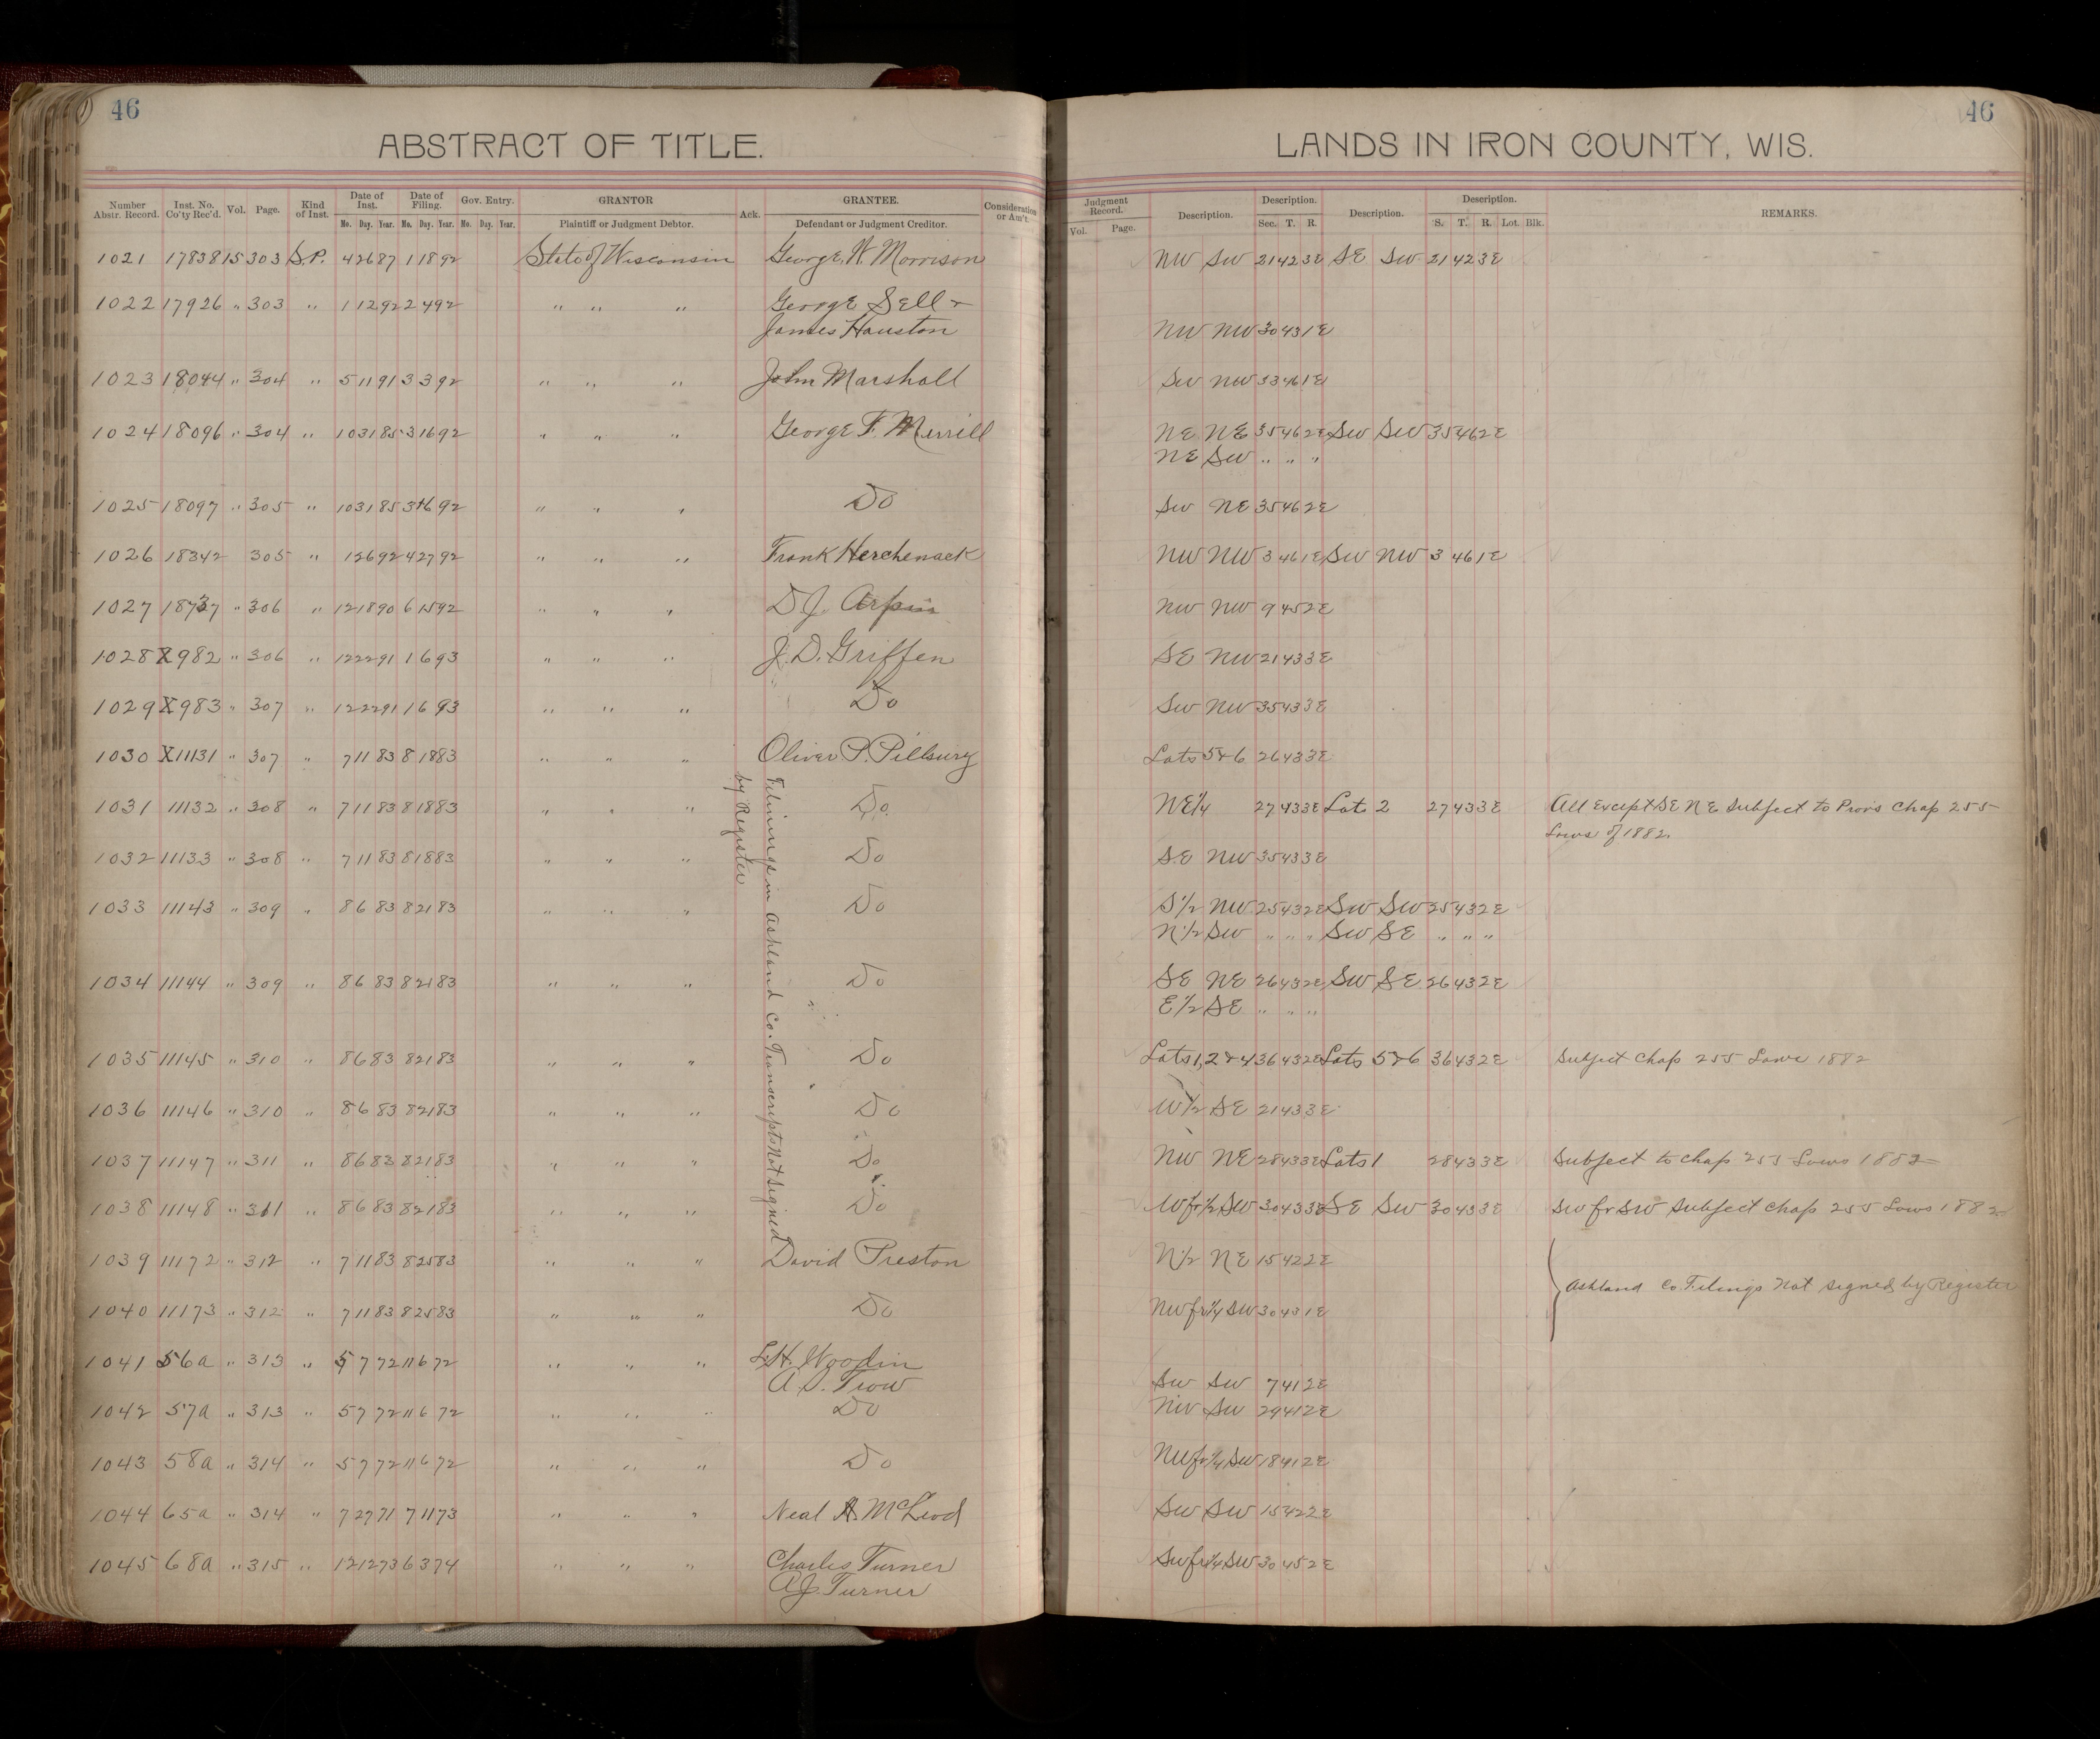 46
ABSTRACT OF TITLE.
Number Abstr. Record. Inst. No. Co'ty Rec'd. Vol. Page. Kind of Inst. Date of Inst. Date of Filing. Gov. Entry. GRANTOR Ack. GRANTEE. Consideration or Am't.
Mo. Day. Year. Mo. Day. Year. Mo. Day. Year. Plaintiff or Judgment Debtor. Defendant or Judgment Creditor.
1021 17838 15 303 S.P. 4 26 87 1 18 92 State of Wisconsin George W. Morrison
1022 17926 " 303 " 1 12 92 2 4 92 " " " George Sell &
James Hauston
1023 18044 " 304 " 5 11 91 3 3 92 " " " John Marshall
1024 18096 " 304 " 10 31 85 3 16 92 " " " George F. Merrill
1025 18097 " 305 " 10 31 85 3 16 92 " " " Do
1026 18342 305 " 1 26 92 4 27 92 " " " Frank Herchenack
1027 18737 " 306 " 12 18 90 6 15 92 " " " D J. Arpin
1028 X982 " 306 " 12 22 91 1 6 93 " " " J. D. Griffen
1029 X983 " 307 " 12 22 91 1 6 93 " " " Do
1030 X11131 " 307 " 7 11 83 8 18 83 " " " Oliver P. Pillsury
1031 11132 " 308 " 7 11 83 8 18 83 " " " Do
1032 11133 " 308 " 7 11 83 8 18 83 " " " Do
1033 11143 " 309 " 8 6 83 8 21 83 " " " Do
1034 11144 " 309 " 8 6 83 8 21 83 " " " Do
1035 11145 " 310 " 8 6 83 8 21 83 " " " Do
1036 11146 " 310 " 8 6 83 8 21 83 " " " Do
1037 11147 " 311 " 8 6 83 8 21 83 " " " Do
1038 11148 " 311 " 8 6 83 8 21 83 " " " Do
1039 11172 " 312 " 7 11 83 8 25 83 " " " David Preston
1040 11173 " 312 " 7 11 83 8 25 83 " " " Do
1041 56a " 313 " 5 7 72 11 6 72 " " " L. H. Woodin
A. S. Trow
1042 57a " 313 " 5 7 72 11 6 72 " " " Do
1043 58a " 314 " 5 7 72 11 6 72 " " " Do
1044 65a " 314 " 7 27 71 7 11 73 " " " Neal A. McLeod
1045 68a " 315 " 12 12 73 6 3 74 " " " Charles Turner
A J. Turner
Filinings in Ashland Co. Transcripts Not Signed
by Register
46
LANDS IN IRON COUNTY, WIS.
Judgment Record. Description. Description. Description. Description. REMARKS.
Vol. Page. Sec. T. R. S. T. R. Lot. Blk.
NW SW 21 42 3E SE SW 21 42 3E
NW NW 30 43 1E
SW NW 33 46 1E
NE NE 35 46 2E SW SW 35 46 2E
NE SW " " "
SW NE 35 46 2E
NW NW 3 46 1E SW NW 3 46 1E
NW NW 9 45 2E
SE NW 21 43 3E
SW NW 35 43 3E
Lots 5 & 6 26 43 3E
NE 1/4 27 43 3E Lot 2 27 43 3E All Except SE NE Subject to Provs Chap 255
Laws of 1882
SE NW 35 43 3E
S 1/2 NW 25 43 2E SW SW 25 43 2E
N 1/2 SW " " " SW SE " " "
SE NE 26 43 2E SW SE 26 43 2E
E 1/2 SE " " "
Lots 1, 2 & 4 36 43 2E Lots 5 & 6 36 43 2E Subject Chap 255 Laws 1882
W 1/2 SE 21 43 3E
NW NE 28 43 3E Lots 1 28 43 3E Subject to Chap 255 Laws 1882
W fr 1/2 SW 30 43 3E SE SW 30 43 3E SW fr SW Subject Chap 255 Laws 1882
N 1/2 NE 15 42 2E
Ashland Co. Filings Not Signed by Register
NW fr 1/4 SW 30 43 1E
SW SW 7 41 2E
NW SW 29 41 2E
NW fr 1/4 SW 18 41 2E
SW SW 15 42 2E
SW fr 1/4 SW 30 45 2E